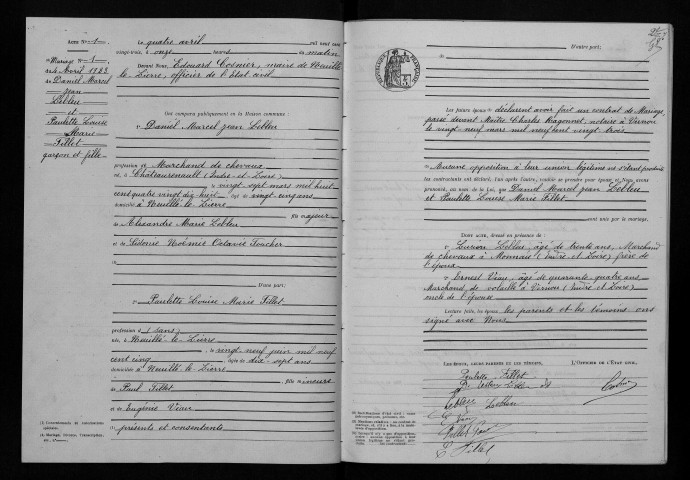 ACTE N° 1
Mariage N° 1
du 4 Avril 1923
de Daniel Marcel
Jean
Lebleu
et
Paulette Louise
Marie
Fillet
garçon et fille
Le quatre avril mil neuf cent
vingt-trois, à onze heures du matin
Devant Nous, Edouard Cosnier, maire de Neuillé
le Lierre, officier de l'état civil
Ont comparu publiquement en la Maison commune :
Daniel Marcel Jean Lebleu
profession de Marchand de chevaux
né à Châteaurenault (Indre et Loire)
le vingt sept mars mil huit
cent quatre vingt dix huit, âgé de vingt cinq ans
domicilié à Neuillé le Lierre
fils majeur
de Alexandre Marie Lebleu
et de Sidonie Noémie Octavie Foucher
D'une part;
Paulette Louise Marie Fillet
profession (sans)
née à Neuillé-le-Lierre
le vingt-neuf juin mil neuf
cent cinq, âgée de dix-sept ans
domiciliée à Neuillé-le-Lierre
fille mineure
de Paul Fillet
et de Eugénie Viau
présents et consentants
D'autre part;
RÉPUBLIQUE FRANÇAISE
Les futurs époux déclarent avoir fait un contrat de Mariage
passé devant Maître Charles Ragonnet, notaire à Vernou
le vingt neuf mars mil neuf cent vingt trois
Aucune opposition à leur union légitime ne s'étant produite
les contractants ont déclaré, l'un après l'autre, vouloir se prendre pour époux, et Nous avons
prononcé, au nom de la Loi, que Daniel Marcel Jean Lebleu
et Paulette Louise Marie Fillet
sont unis par le mariage.
DONT ACTE, dressé en présence de :
Lucien Lebleu, âgé de trente ans, Marchand
de chevaux à Monnaie (Indre et Loire) frère de
l'époux
Ernest Viau, âgé de quarante-quatre ans
Marchand de volaille à Vernou (Indre et Loire)
oncle de l'épouse
Lecture faite, les époux, les parents et les témoins ont
signé avec Nous
LES ÉPOUX, LEURS PARENTS ET LES TÉMOINS,
L'OFFICIER DE L'ÉTAT CIVIL,
Paulette Fillet
Lebleu
E Viau
Fillet Paul
Cosnier